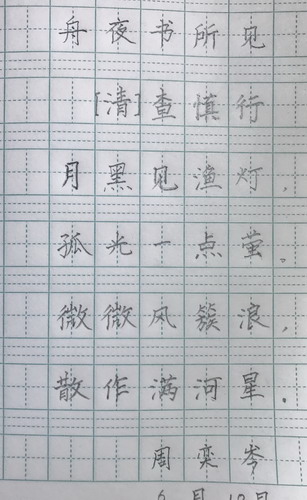 舟夜书所见
[清]查慎行
月黑见渔灯，
孤光一点萤。
微微风簇浪，
散作满河星。
周栾岑